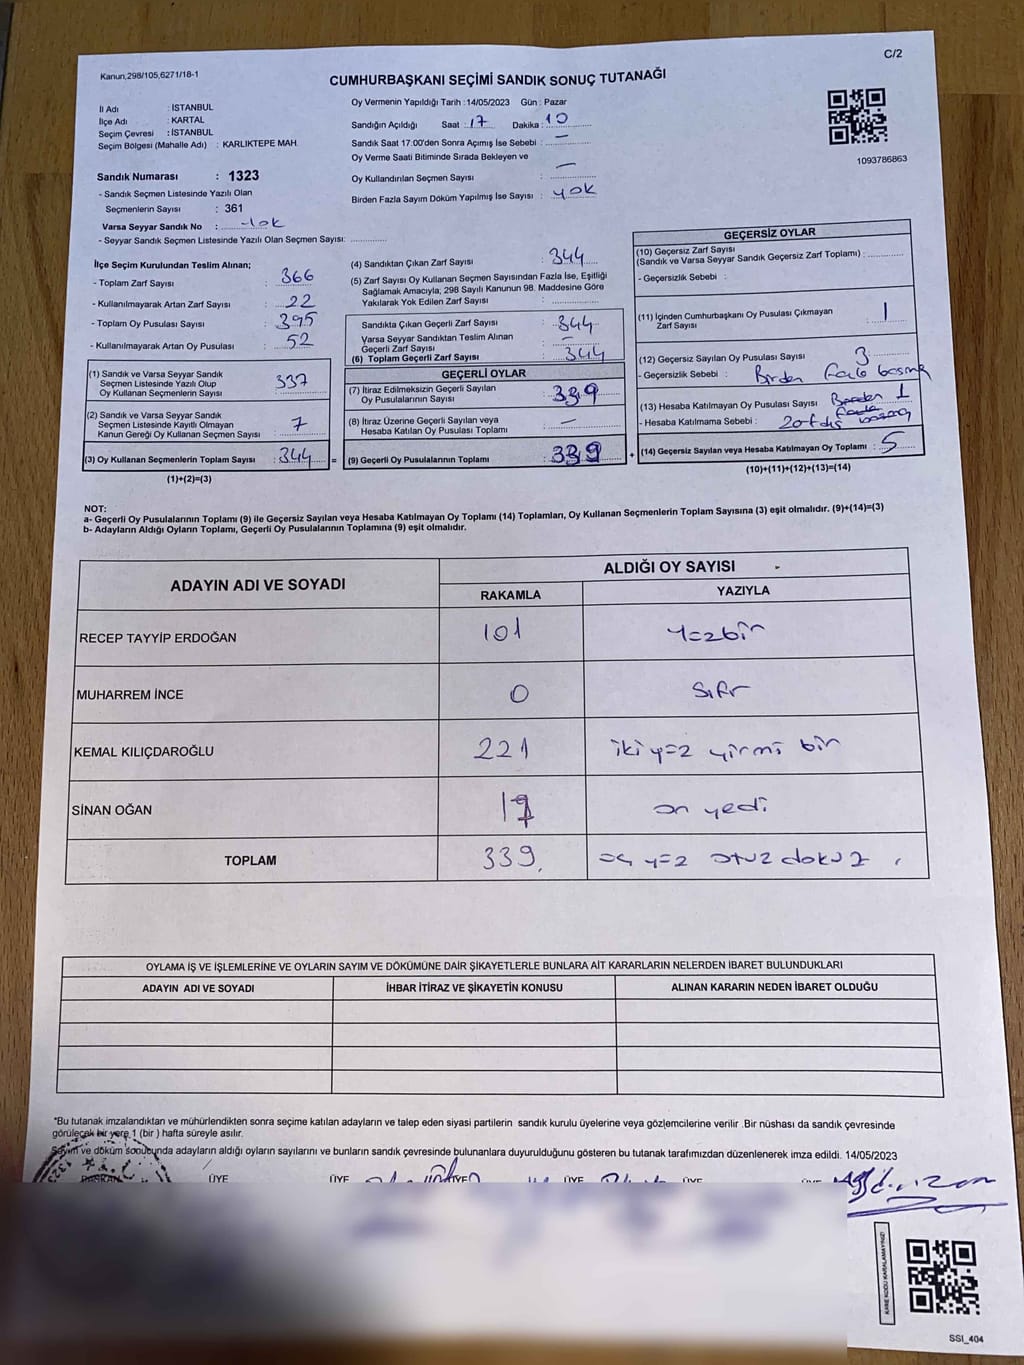 C/2
Kanun,298/105,6271/18-1
CUMHURBAŞKANI SEÇİMİ SANDIK SONUÇ TUTANAĞI
İl Adı : İSTANBUL
İlçe Adı : KARTAL
Seçim Çevresi : İSTANBUL
Seçim Bölgesi (Mahalle Adı) : KARLIKTEPE MAH.
Sandık Numarası : 1323
- Sandık Seçmen Listesinde Yazılı Olan
Seçmenlerin Sayısı : 361
Varsa Seyyar Sandık No : yok
- Seyyar Sandık Seçmen Listesinde Yazılı Olan Seçmen Sayısı:
Oy Vermenin Yapıldığı Tarih : 14/05/2023 Gün : Pazar
Sandığın Açıldığı Saat : 17 Dakika : 10
Sandık Saat 17:00'den Sonra Açımış İse Sebebi : —
Oy Verme Saati Bitiminde Sırada Bekleyen ve
Oy Kullandırılan Seçmen Sayısı : —
Birden Fazla Sayım Döküm Yapılmış İse Sayısı : yok
1093786863
İlçe Seçim Kurulundan Teslim Alınan;
- Toplam Zarf Sayısı : 366
- Kullanılmayarak Artan Zarf Sayısı : 22
- Toplam Oy Pusulası Sayısı : 395
- Kullanılmayarak Artan Oy Pusulası : 52
(1) Sandık ve Varsa Seyyar Sandık
Seçmen Listesinde Yazılı Olup
Oy Kullanan Seçmenlerin Sayısı : 337
(2) Sandık ve Varsa Seyyar Sandık
Seçmen Listesinde Kayıtlı Olmayan
Kanun Gereği Oy Kullanan Seçmen Sayısı : 7
(3) Oy Kullanan Seçmenlerin Toplam Sayısı : 344 =
(1)+(2)=(3)
(4) Sandıktan Çıkan Zarf Sayısı : 344
(5) Zarf Sayısı Oy Kullanan Seçmen Sayısından Fazla İse, Eşitliği
Sağlamak Amacıyla, 298 Sayılı Kanunun 98. Maddesine Göre
Yakılarak Yok Edilen Zarf Sayısı :
Sandıkta Çıkan Geçerli Zarf Sayısı : 344
Varsa Seyyar Sandıktan Teslim Alınan
Geçerli Zarf Sayısı : —
(6) Toplam Geçerli Zarf Sayısı : 344
GEÇERLİ OYLAR
(7) İtiraz Edilmeksizin Geçerli Sayılan
Oy Pusulalarının Sayısı : 339
(8) İtiraz Üzerine Geçerli Sayılan veya
Hesaba Katılan Oy Pusulası Toplamı : —
(9) Geçerli Oy Pusulalarının Toplamı : 339 +
GEÇERSİZ OYLAR
(10) Geçersiz Zarf Sayısı
(Sandık ve Varsa Seyyar Sandık Geçersiz Zarf Toplamı) :
- Geçersizlik Sebebi :
(11) İçinden Cumhurbaşkanı Oy Pusulası Çıkmayan
Zarf Sayısı : 1
(12) Geçersiz Sayılan Oy Pusulası Sayısı : 3
- Geçersizlik Sebebi : Birden fazla basmak
(13) Hesaba Katılmayan Oy Pusulası Sayısı : 1
- Hesaba Katılmama Sebebi :
(14) Geçersiz Sayılan veya Hesaba Katılmayan Oy Toplamı : 5
(10)+(11)+(12)+(13)=(14)
NOT:
a- Geçerli Oy Pusulalarının Toplamı (9) ile Geçersiz Sayılan veya Hesaba Katılmayan Oy Toplamı (14) Toplamları, Oy Kullanan Seçmenlerin Toplam Sayısına (3) eşit olmalıdır. (9)+(14)=(3)
b- Adayların Aldığı Oyların Toplamı, Geçerli Oy Pusulalarının Toplamına (9) eşit olmalıdır.
ADAYIN ADI VE SOYADI
ALDIĞI OY SAYISI
RAKAMLA YAZIYLA
RECEP TAYYİP ERDOĞAN 101 Yüzbir
MUHARREM İNCE 0 Sıfır
KEMAL KILIÇDAROĞLU 221 iki yüz yirmi bir
SİNAN OĞAN 17 on yedi
TOPLAM 339 üç yüz otuz dokuz
OYLAMA İŞ VE İŞLEMLERİNE VE OYLARIN SAYIM VE DÖKÜMÜNE DAİR ŞİKAYETLERLE BUNLARA AİT KARARLARIN NELERDEN İBARET BULUNDUKLARI
ADAYIN ADI VE SOYADI İHBAR İTİRAZ VE ŞİKAYETİN KONUSU ALINAN KARARIN NEDEN İBARET OLDUĞU
*Bu tutanak imzalandıktan ve mühürlendikten sonra seçime katılan adayların ve talep eden siyasi partilerin sandık kurulu üyelerine veya gözlemcilerine verilir .Bir nüshası da sandık çevresinde
görülecek bir yere 1 (bir ) hafta süreyle asılır.
Sayım ve döküm sonucunda adayların aldığı oyların sayılarını ve bunların sandık çevresinde bulunanlara duyurulduğunu gösteren bu tutanak tarafımızdan düzenlenerek imza edildi. 14/05/2023
BAŞKAN ÜYE ÜYE ÜYE ÜYE ÜYE
KARE KODU KARALAMAYINIZ!
SSI_404